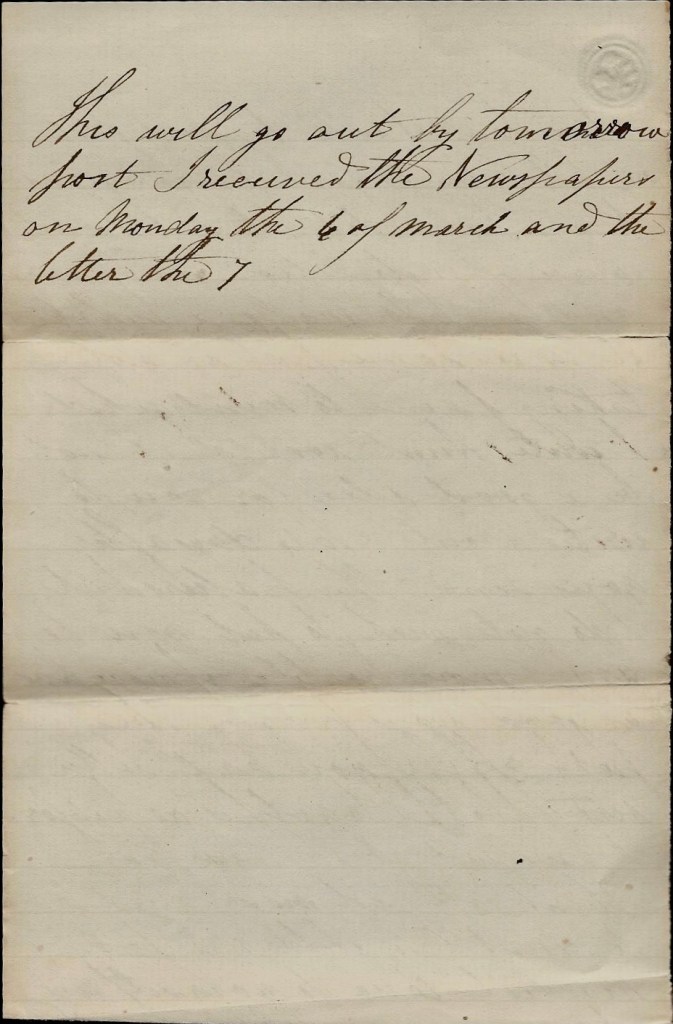 This will go out by tomorrow
post I received the Newspapers
on Monday the 6 of march and the
letter the 7